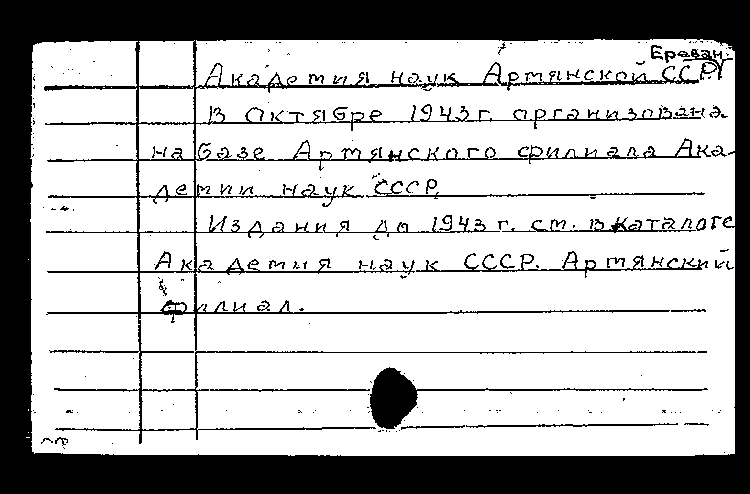 Ереван.
Академия наук Армянской ССР
В октябре 1943 г. организована
на базе Армянского филиала Ака-
демии наук СССР.
Издания до 1943 г. см. в каталоге
Академия наук СССР. Армянский
филиал.